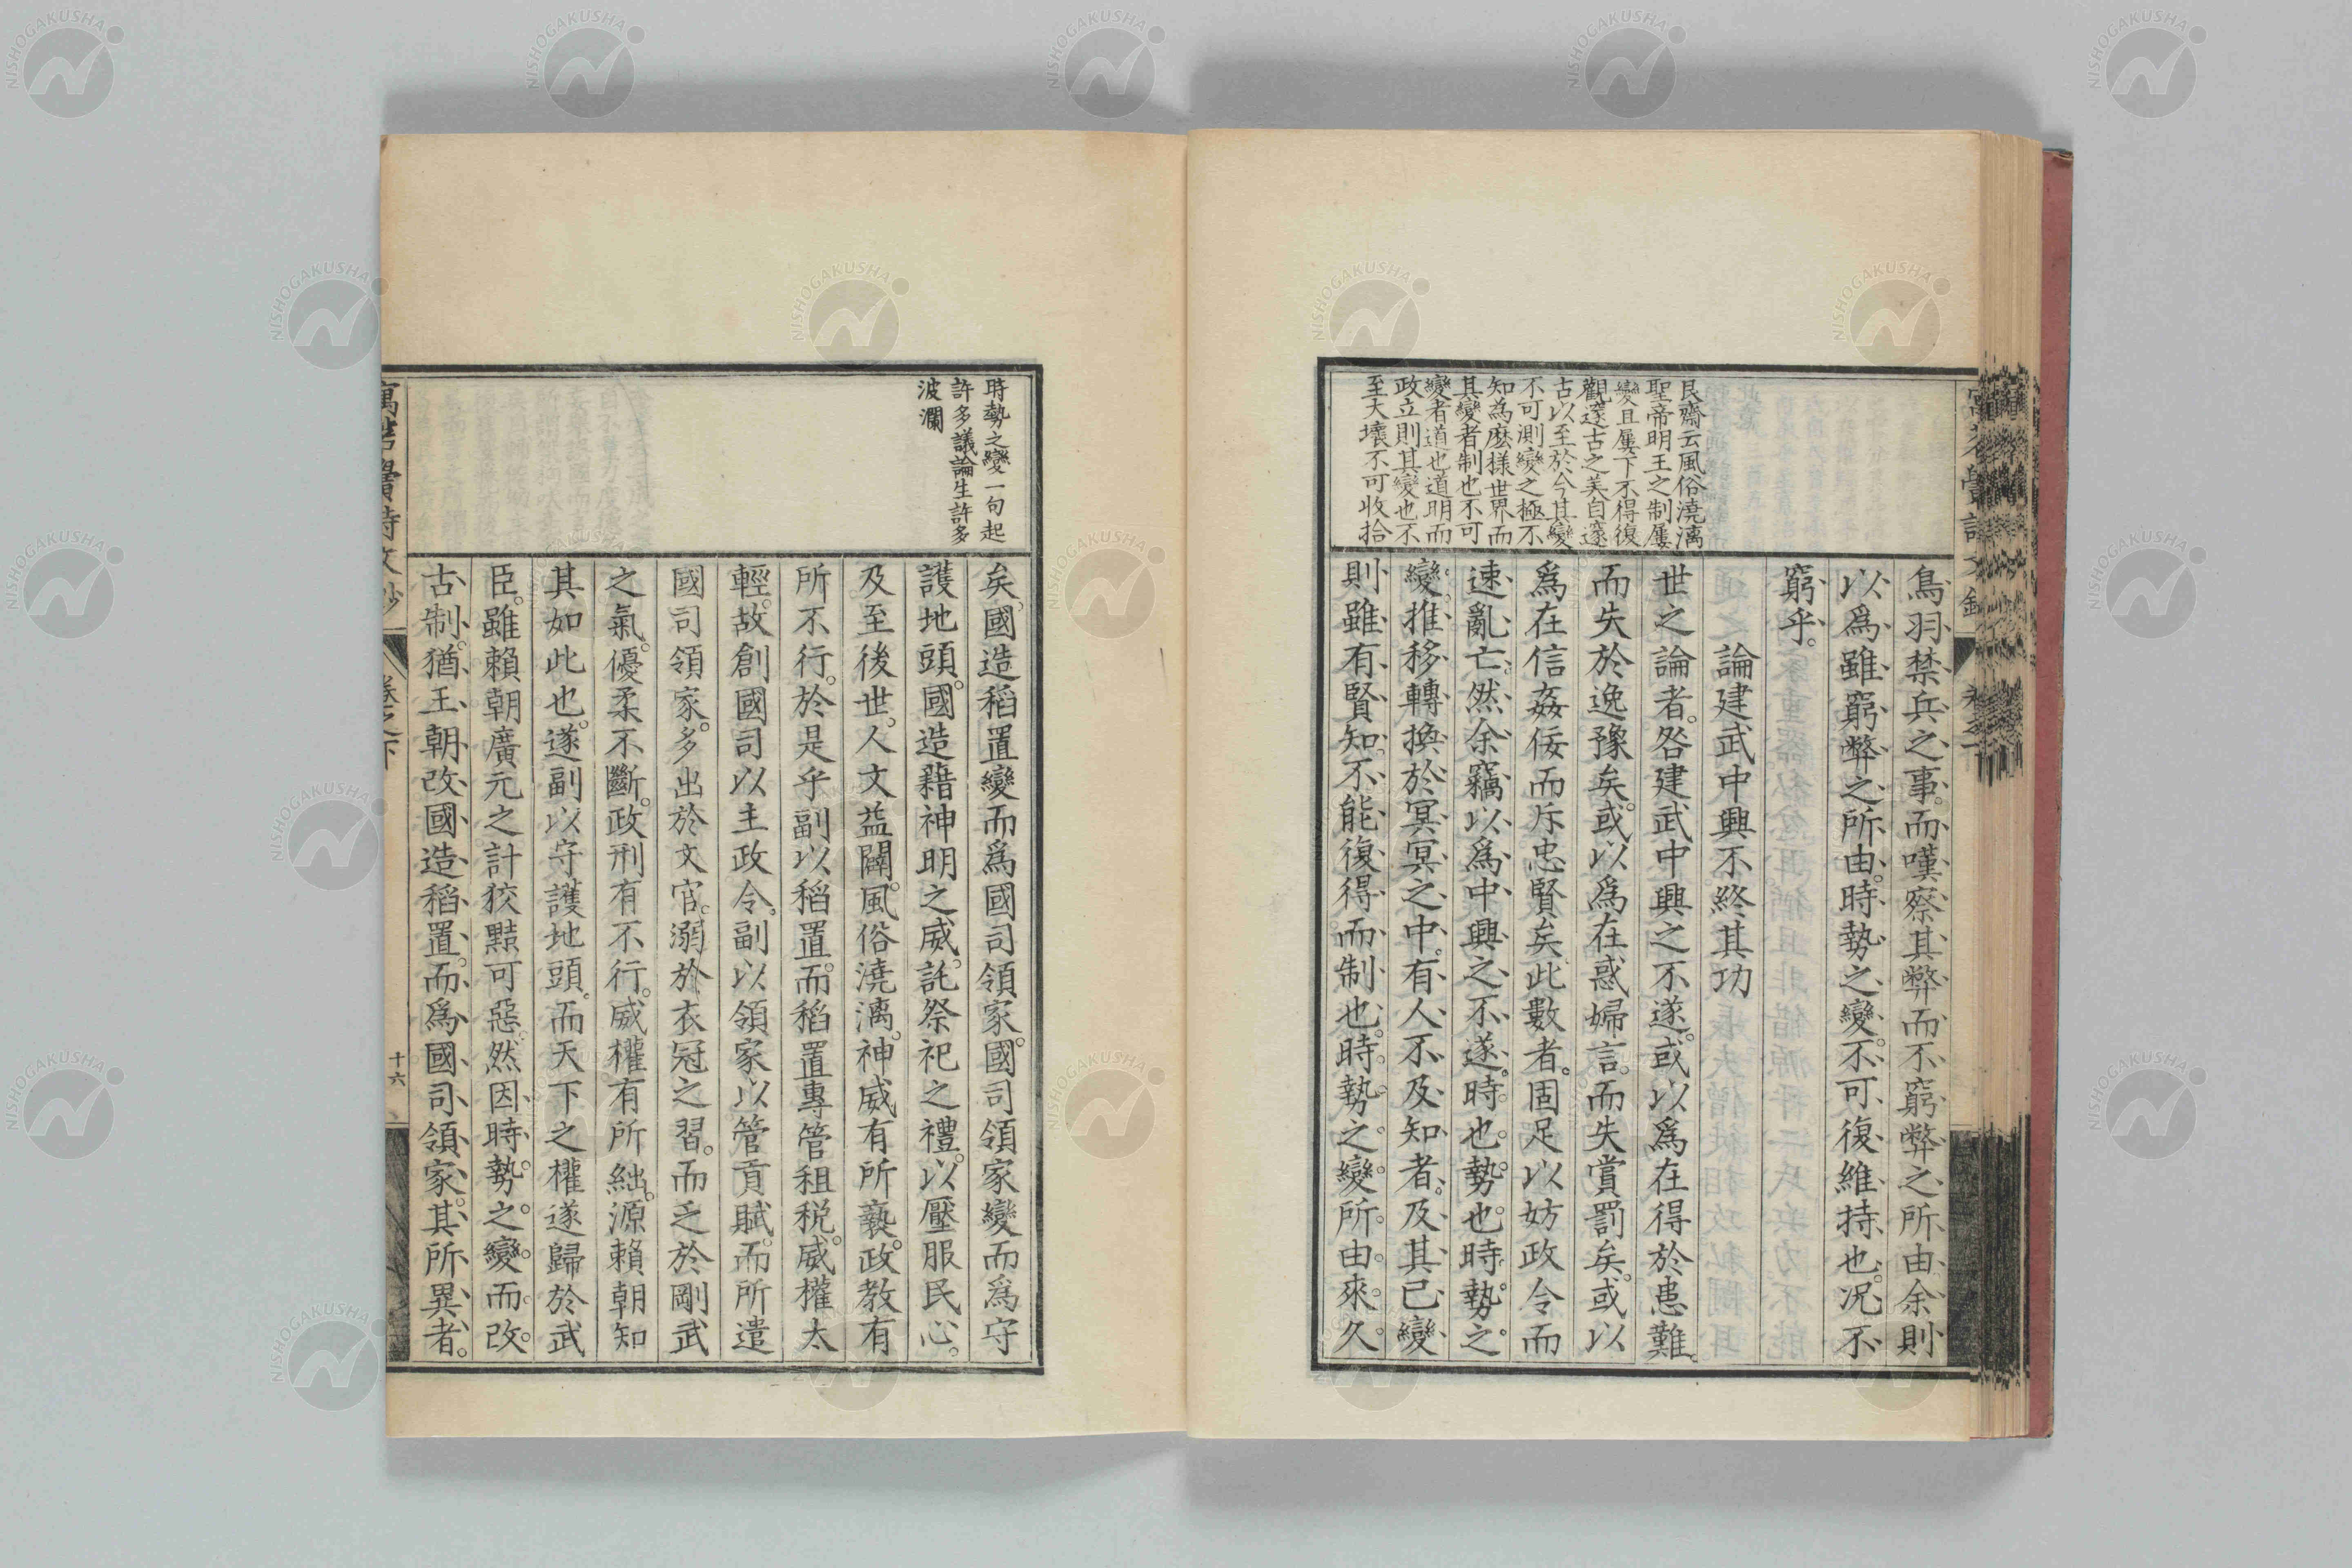 鳥羽禁兵之事。而嘆察其弊而不窮弊之所由、余則
以爲雖窮弊之所由。時勢之變。不可復維持也。况不
窮乎。
論建武中興不終其功
世之論者。咎建武中興之不遂。或以爲在得於患難。
而失於逸豫矣。或以爲在惑婦言。而失賞罰矣。或以
爲在信姦佞而斥忠賢矣。此數者。固足以妨政令而
速亂亡。然余竊以爲中興之不遂。時也。勢也。時勢之
變。推移轉換於冥冥之中。有人不及知者。及其已變
則雖有賢知。不能復得而制也。時勢之變所由來久
艮齋云風俗澆漓
聖帝明王之制屢
變且屢下不得復
觀邃古之美自邃
古以至於今其變
不可測變之極不
知為麽樣世界而
其變者制也不可
變者道也道明而
政立則其變也不
至大壞不可收拾
矣。國造稻置變而爲國司領家。國司領家變而爲守
護地頭。國造藉神明之威。託祭祀之禮。以壓服民心。
及至後世。人文益闢。風俗澆漓。神威有所褻。政教有
所不行。於是乎副以稻置。而稻置專管租税。威權太
輕。故創國司以主政令。副以領家以管貢賦。而所遣
國司領家。多出於文官。溺於衣冠之習。而乏於剛武
之氣。優柔不斷。政刑有不行。威權有所絀。源賴朝知
其如此也。遂副以守護地頭。而天下之權遂歸於武
臣。雖賴朝廣元之計狡黠可惡。然因時勢之變而改
古制。猶王朝改國造稻置。而爲國司領家。其所異者。
時勢之變一句起
許多議論生許多
波瀾
卷之下
十六